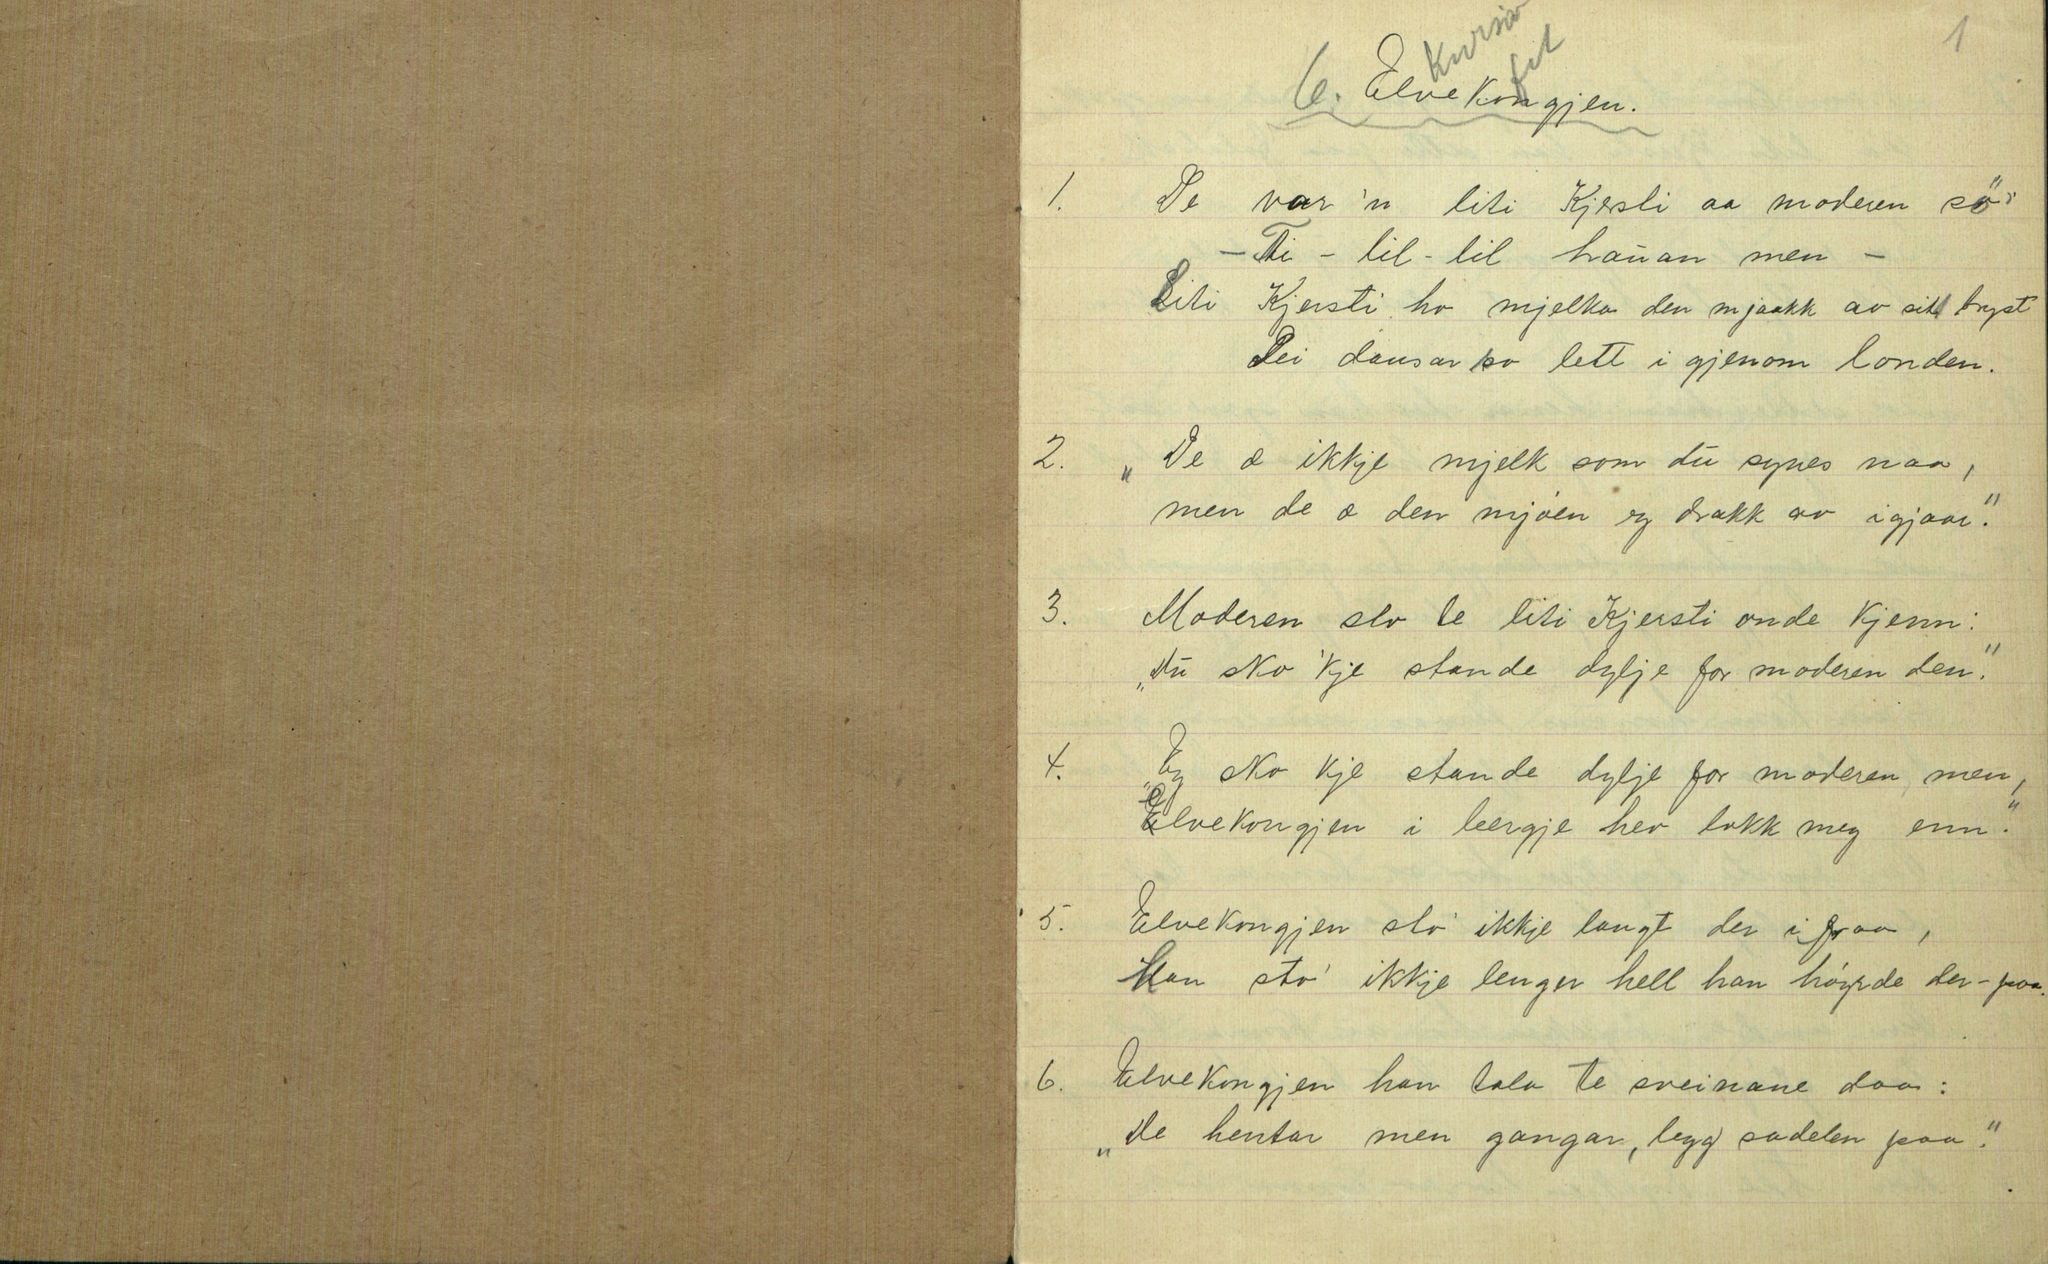 1
6. Elvekongjen.
1. De var 'n liti Kjersti aa moderen
– Ti – lil – lil haŭan men –
Liti Kjersti ho mjelka den mjaakk av sitt bryst
Dei dansar so lett i gjenom londen.
2. „De æ ikkje mjelk som dŭ synes naa,
men de æ den mjöen eg drakk av igjaar."
3. Moderen slo te liti Kjersti onde kjenn:
„Dŭ sko 'kje stande dylje for moderen den."
4. „Eg sko kje stande dylje for moderen men,
Elvekongjen i bergje hev lokk meg enn."
5. Elvekongjen sto' ikkje langt der ifraa,
Han sto' ikkje lenger hell han höyrde der-paa.
6. Elvekongjen han tala te sveinane daa:
„De hentar men gangar, legg sadelen paa."